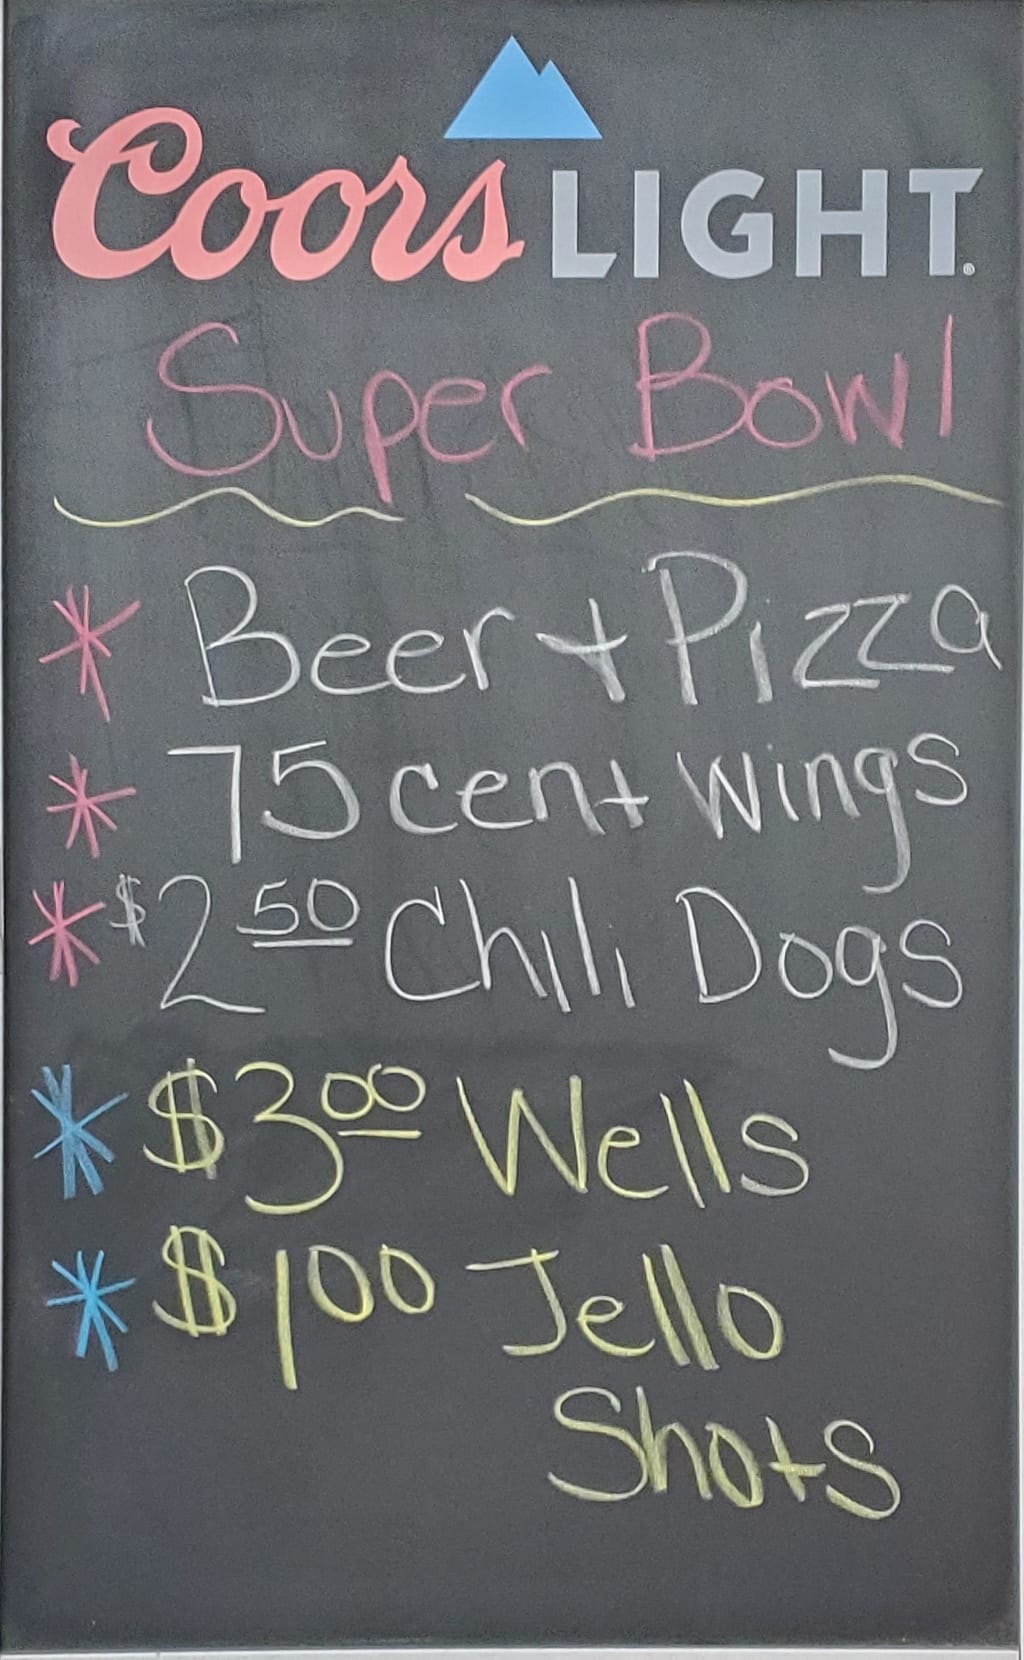 Coors LIGHT®
Super Bowl
* Beer + Pizza
* 75 cent wings
* $2 50 Chili Dogs
* $3 00 Wells
* $100 Jello
Shots